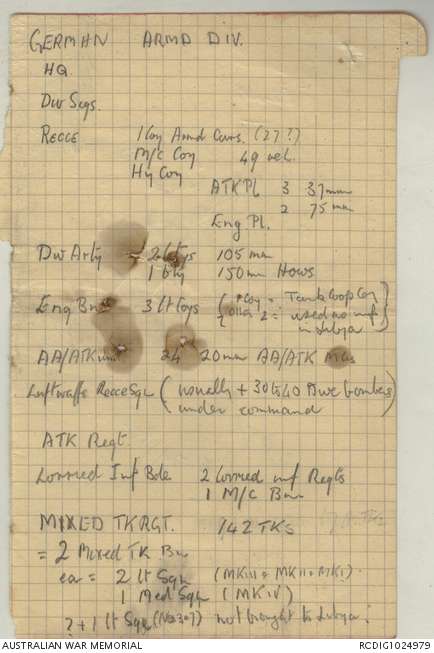 GERMAN ARMD DIV.
HQ
Div Sigs.
RECCE 1 Coy Armd Cars. (27?)
M/C Coy 49 vel.
Hy Coy
ATK Pl 3 37mm
2 75 mm
Eng Pl.
Div Arty 2 btys 105 mm
1 bty 150mm Hows
Eng Bn 3 Lt Coys
used as inf
in Libya
AA/ATK unit 24 20mm AA/ATK MGs
Luftwaffe Recce Sqn (usually + 30 to 40 Dive bombers)
under command
ATK Regt.
Lorried Inf Bde 2 lorried inf Regts
1 M/C Bn
MIXED TK RGT. 142 TKS
= 2 Mixed TK Bn
ea = 2 Lt Sqn (MK III + MK II + MK I)
1 Med Sqn (MK IV)
? + 1 Lt Sqn (No 3 or 7) not brought to Libya.
AUSTRALIAN WAR MEMORIAL RCDIG1024979